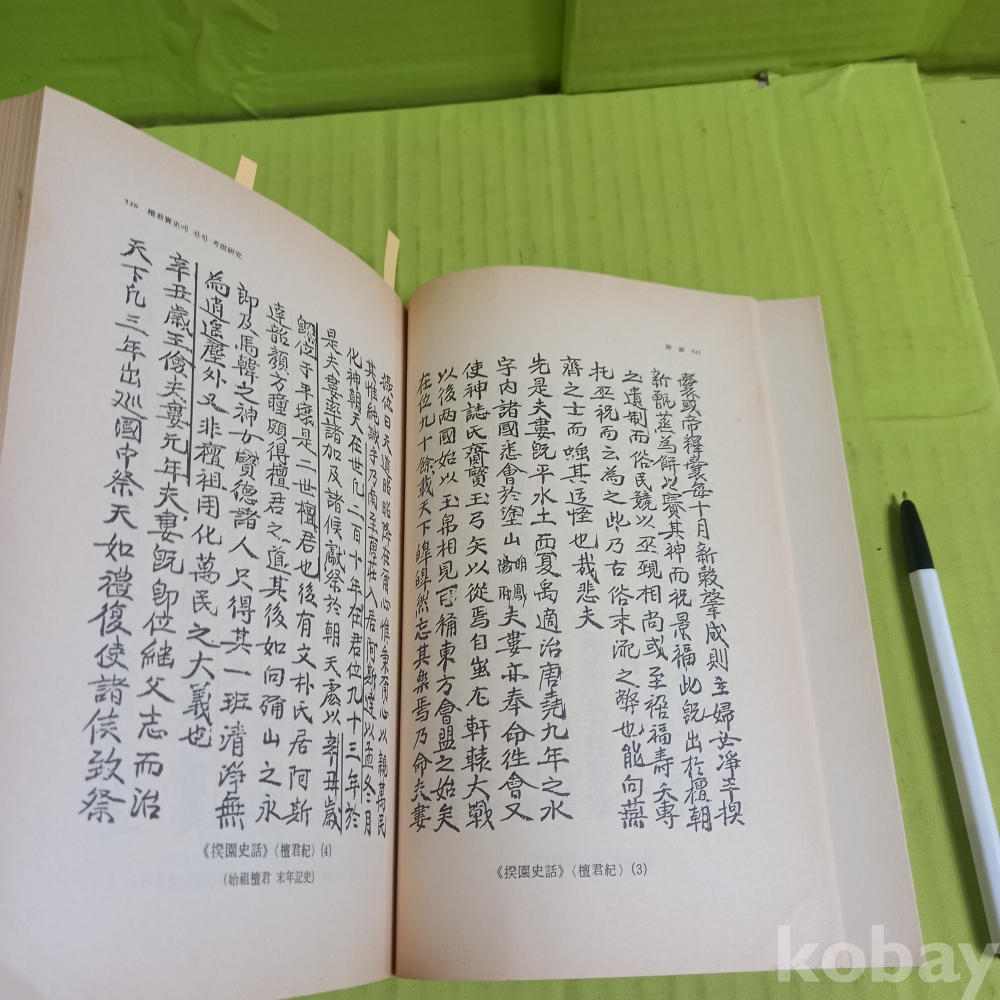 附錄 521
囊或帝釋囊每十月新穀肇成則主婦女淨手揳
新甑蒸為餅以賽其神而祝景福此既出於檀朝
之遺制而俗民競以巫覡相尚或至祈福壽夭專
托巫祝而之為之此乃古俗末流之弊也能向無
齊之士而其迂怪也哉悲夫
先是夫婁既平水土而夏禹適治唐堯九年之水
宇内諸國悉會於塗山明鳳陽府夫婁亦奉命徃會又
使神誌氏齎寶玉弓矢以從焉自蚩尤軒轅大戰
以後两國始以玉帛相見可稱東方會盟之始矣
在位九十餘載天下皞皞然忘其樂焉乃命夫婁
《揆園史話》〈檀君紀〉(3)
520 檀君實史에 관한 考證研究
攝位曰天道昭昭降在甭心惟秉甭心以親萬民
其惟純誠寺乃南至唐莊入居阿斯達以孟冬月
化神朝天在世凢二百十年在君位九十三年於
是夫婁率諸加及諸候獻祭於朝天處以辛丑歳
即位于平壤是二世檀君也後有文朴氏居阿斯
達韶顔方瞳頗得檀君之道其後如向彌山之永
郎及馬韓之神女寶德諸人只得其一班清淨無
為逍遙塵外又非檀祖用化萬民之大義也
辛丑歳王儉夫婁元年夫婁既即位継父志而治
天下凢三年出巡國中祭天如禮復使諸侯致祭
《揆園史話》〈檀君紀〉(4)
(始祖檀君 末年記史)
kobay